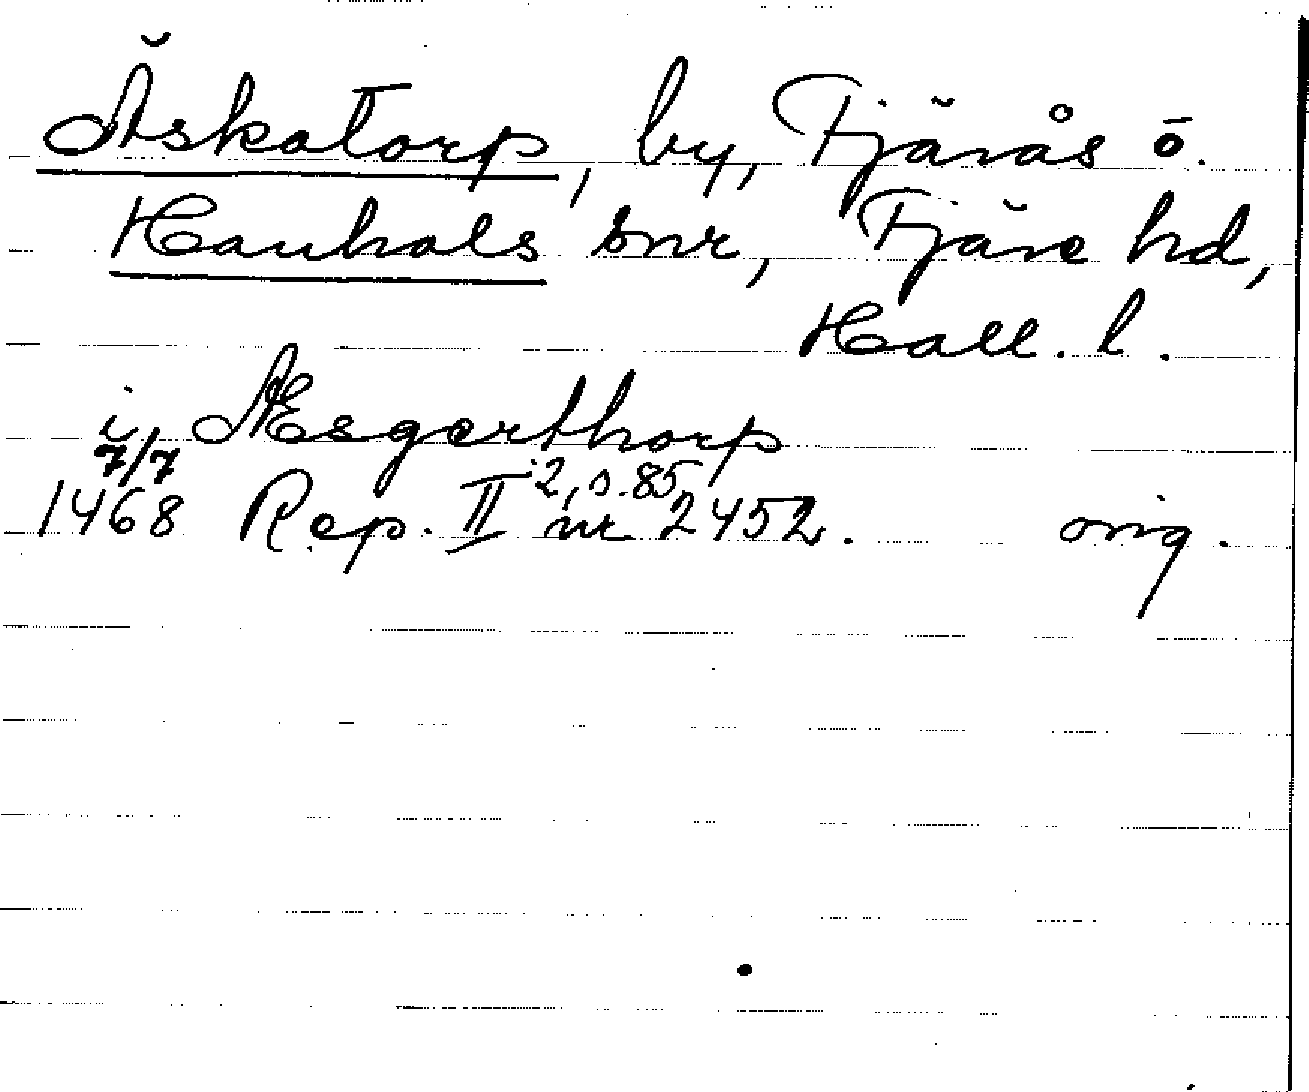 Äskatorp, by, Fjärås ö.
Hanhals snr, Fjäre hd,
Hall. l.
i Æsgerthorp
7/7
1468 Rep. II 2, s. 85 nr 2452. orig.